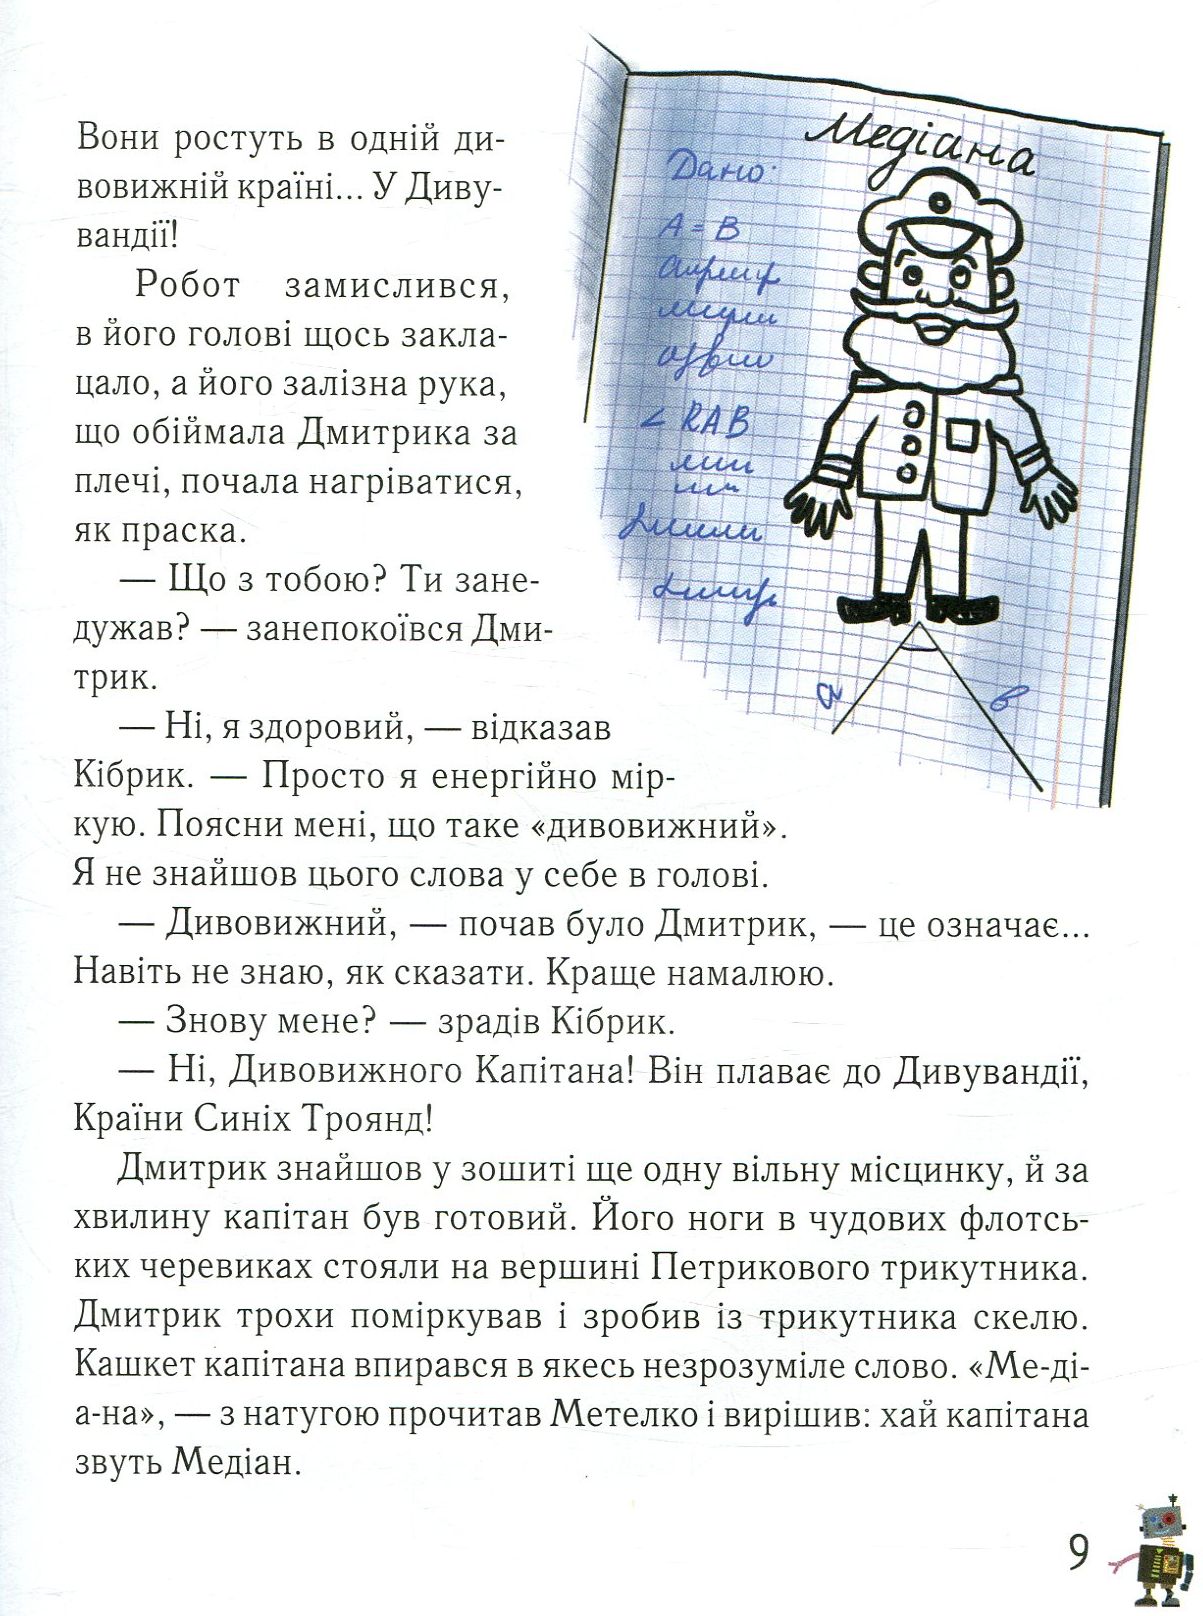 Медіана
Дано:
A = B
< RAB
a
в
Вони ростуть в одній ди-
вовижній країні... У Диву-
вандії!
Робот замислився,
в його голові щось закла-
цало, а його залізна рука,
що обіймала Дмитрика за
плечі, почала нагріватися,
як праска.
— Що з тобою? Ти зане-
дужав? — занепокоївся Дми-
трик.
— Ні, я здоровий, — відказав
Кібрик. — Просто я енергійно мір-
кую. Поясни мені, що таке «дивовижний».
Я не знайшов цього слова у себе в голові.
— Дивовижний, — почав було Дмитрик, — це означає...
Навіть не знаю, як сказати. Краще намалюю.
— Знову мене? — зрадів Кібрик.
— Ні, Дивовижного Капітана! Він плаває до Дивувандії,
Країни Синіх Троянд!
Дмитрик знайшов у зошиті ще одну вільну місцинку, й за
хвилину капітан був готовий. Його ноги в чудових флотсь-
ких черевиках стояли на вершині Петрикового трикутника.
Дмитрик трохи поміркував і зробив із трикутника скелю.
Кашкет капітана впирався в якесь незрозуміле слово. «Ме-ді-
а-на», — з натугою прочитав Метелко і вирішив: хай капітана
звуть Медіан.
9